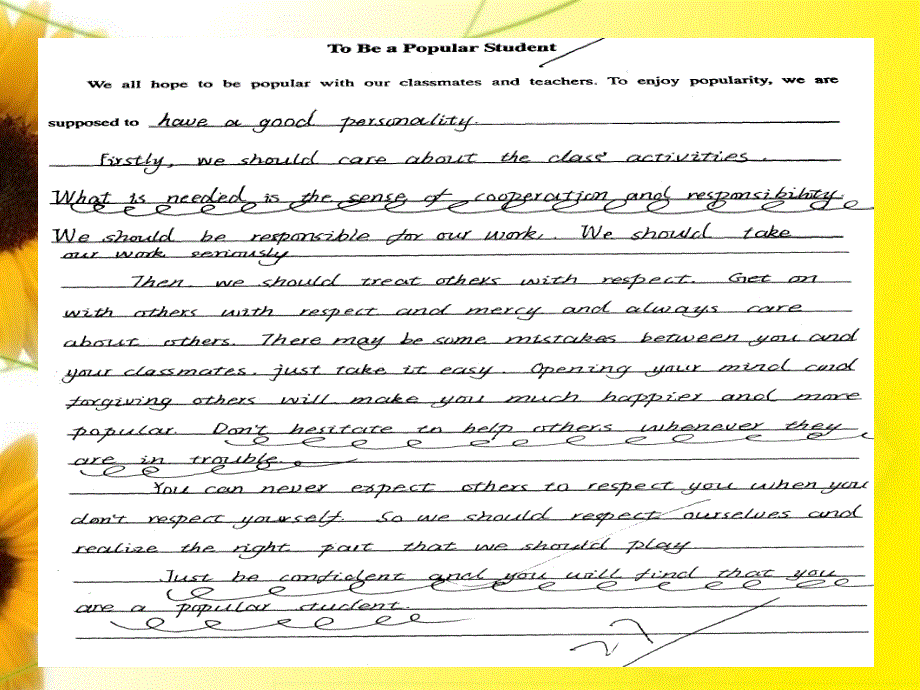 To Be a Popular Student
We all hope to be popular with our classmates and teachers. To enjoy popularity, we are
supposed to have a good personality.
Firstly, we should care about the class activities.
What is needed is the sense of cooperation and responsibility.
We should be responsible for our work. We should take
our work seriously
Then we should treat others with respect. Get on
with others with respect and mercy and always care
about others. There may be some mistakes between you and
your classmates. just take it easy. Opening your mind and
forgiving others will make you much happier and more
popular. Don't hesitate to help others whenever they
are in trouble.
You can never expect others to respect you when you
don't respect yourself. So we should respect ourselves and
realize the right part that we should play
Just be confident and you will find that you
are a popular student.
27